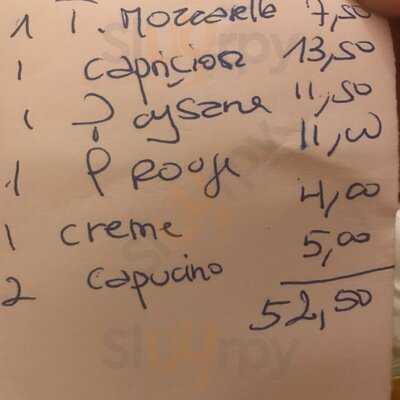 1 T. Mozzarelle 7,50
1 capriciosa 13,50
1 P aysana 11,50
1 P Rouge 11,00
1 creme 4,00
2 capucino 5,00
52,50
Sluurpy
Sluurpy